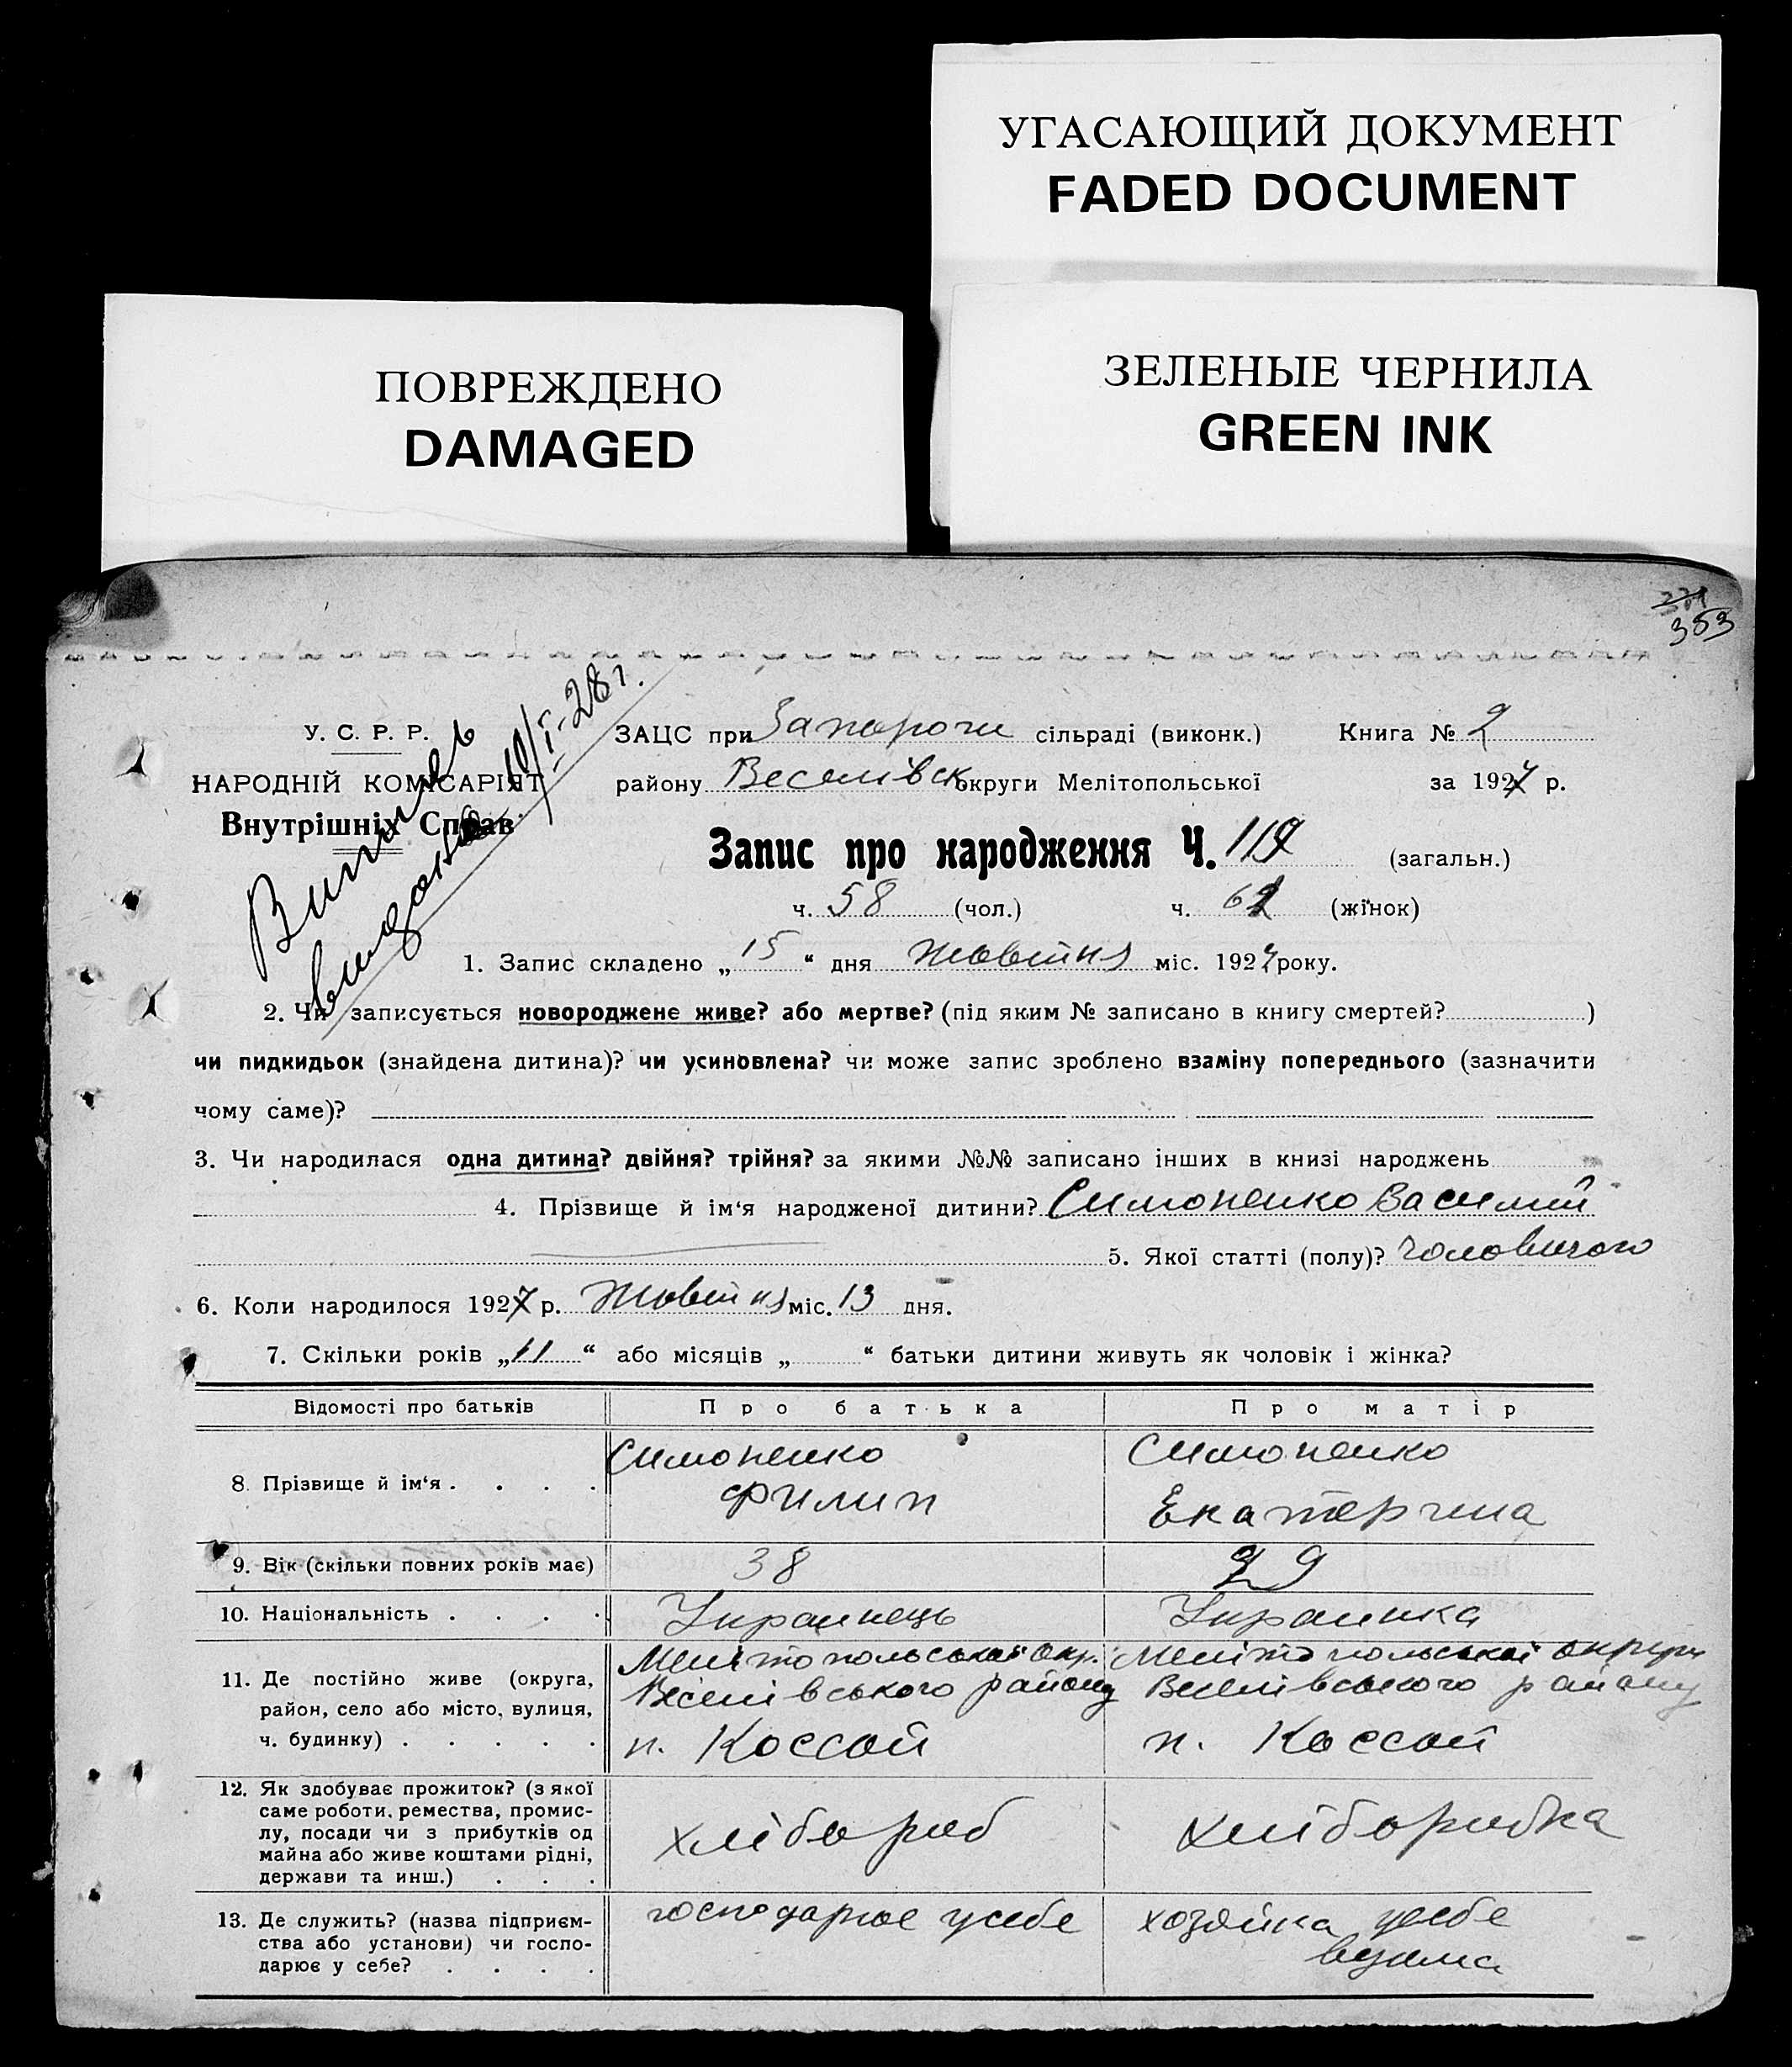 УГАСАЮЩИЙ ДОКУМЕНТ
FADED DOCUMENT
ПОВРЕЖДЕНО
DAMAGED
ЗЕЛЕНЫЕ ЧЕРНИЛА
GREEN INK
353
У. С. Р. Р.
НАРОДНІЙ КОМІСАРІЯТ
Внутрішніх Справ
10/I-28 г.
ЗАЦС при сільраді (виконк.) Книга № 2
району Веселівськ округи Мелітопольської за 1927 р.
Запис про народження Ч. 119 (загальн.)
ч. 58 (чол.) ч. (жінок)
1. Запис складено „ 15 “ дня Жовтня міс. 1927 року.
2. Чи записується новороджене живе? або мертве? (під яким № записано в книгу смертей? )
чи пидкидьок (знайдена дитина)? чи усиновлена? чи може запис зроблено взаміну попереднього (зазначити
чому саме)?
3. Чи народилася одна дитина? двійня? трійня? за якими №№ записано інших в книзі народжень
4. Прізвище й ім‘я народженої дитини? Симоненко Василий
5. Якої статті (полу)? Чоловичого
6. Коли народилося 1927 р. Жовтня міс. 13 дня.
7. Скільки років „ 11 “ або місяців „ “ батьки дитини живуть як чоловік і жінка?
Відомості про батьків Про батька Про матір
8. Прізвище й ім‘я . . . . Симоненко Филип Симоненко Екатерина
9. Вік (скільки повних років має) 38 29
10. Національність . . . . Украинець Украинка
11. Де постійно живе (округа, район, село або місто, вулиця, ч. будинку) . . . . . Мелітопольської окр. Веселівського району п. Коссой Мелітопольської округи Веселівського району п. Коссой
12. Як здобуває прожиток? (з якої саме роботи, ремества, промислу, посади чи з прибутків од майна або живе коштами рідні, держави та инш.) . . . хлібороб хліборобка
13. Де служить? (назва підприємства або установи) чи господарює у себе? . . . . господарює усебе хозяйка усебе вдома